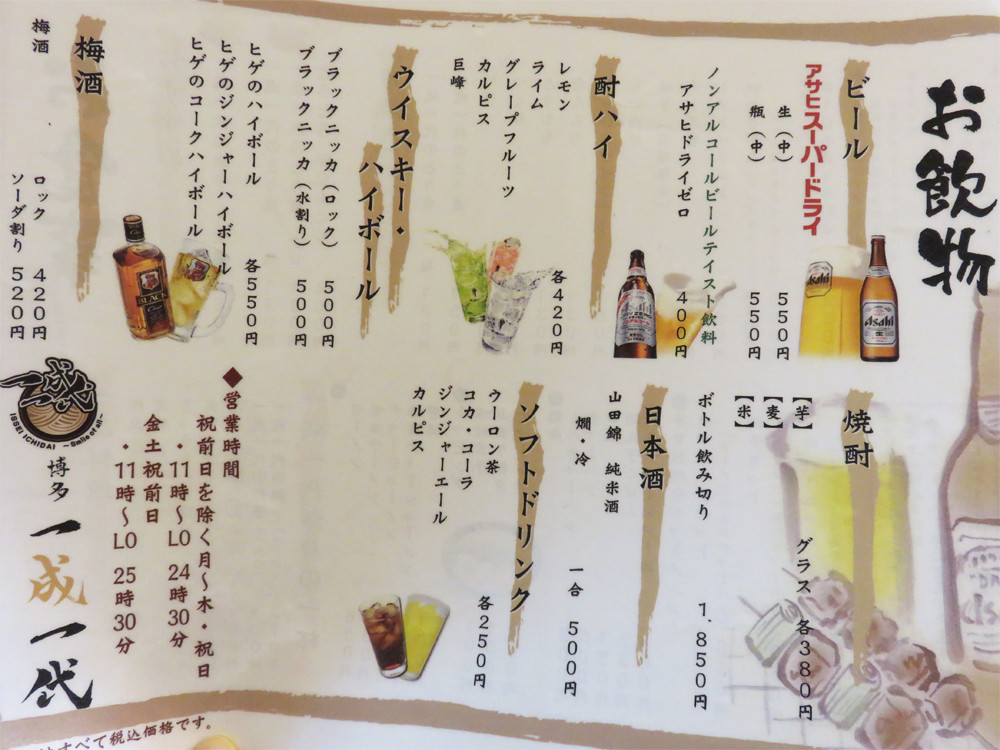 お飲物
ビール
アサヒスーパードライ
生（中） 550円
瓶（中） 550円
ノンアルコールビールテイスト飲料
アサヒドライゼロ 400円
酎ハイ
レモン
ライム
グレープフルーツ
カルピス
巨峰
各420円
ウイスキー・
ハイボール
ブラックニッカ（ロック） 500円
ブラックニッカ（水割り） 500円
ヒゲのハイボール
ヒゲのジンジャーハイボール
ヒゲのコークハイボール
各550円
梅酒
梅酒
ロック 420円
ソーダ割り 520円
焼酎
【芋】
【麦】
【米】
グラス 各380円
ボトル飲み切り 1,850円
日本酒
山田錦 純米酒
燗・冷
一合 500円
ソフトドリンク
ウーロン茶
コカ・コーラ
ジンジャーエール
カルピス
各250円
◆営業時間
祝前日を除く月～木・祝日
・11時～LO 24時30分
金土祝前日
・11時～LO 25時30分
一成一代
ISSEI ICHIDAI ～Smile of all～
博多 一成一代
すべて税込価格です。
Asahi
Asahi
BLACK